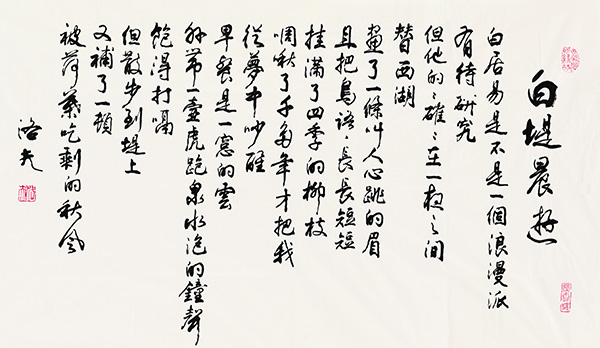 白堤晨遊
白居易是不是一個浪漫派
有待研究
但他的々確々在一夜之間
替西湖
畫了一條叫人心跳的眉
且把鳥語·長長短短
挂滿了四季的柳枝
啁啾了千多年才把我
從夢中吵醒
早餐是一窓的雲
外帶一壺虎跑泉水泡的鐘聲
飽得打嗝
但散步到堤上
又補了一頓
被荷葉吃剩的秋風
洛夫